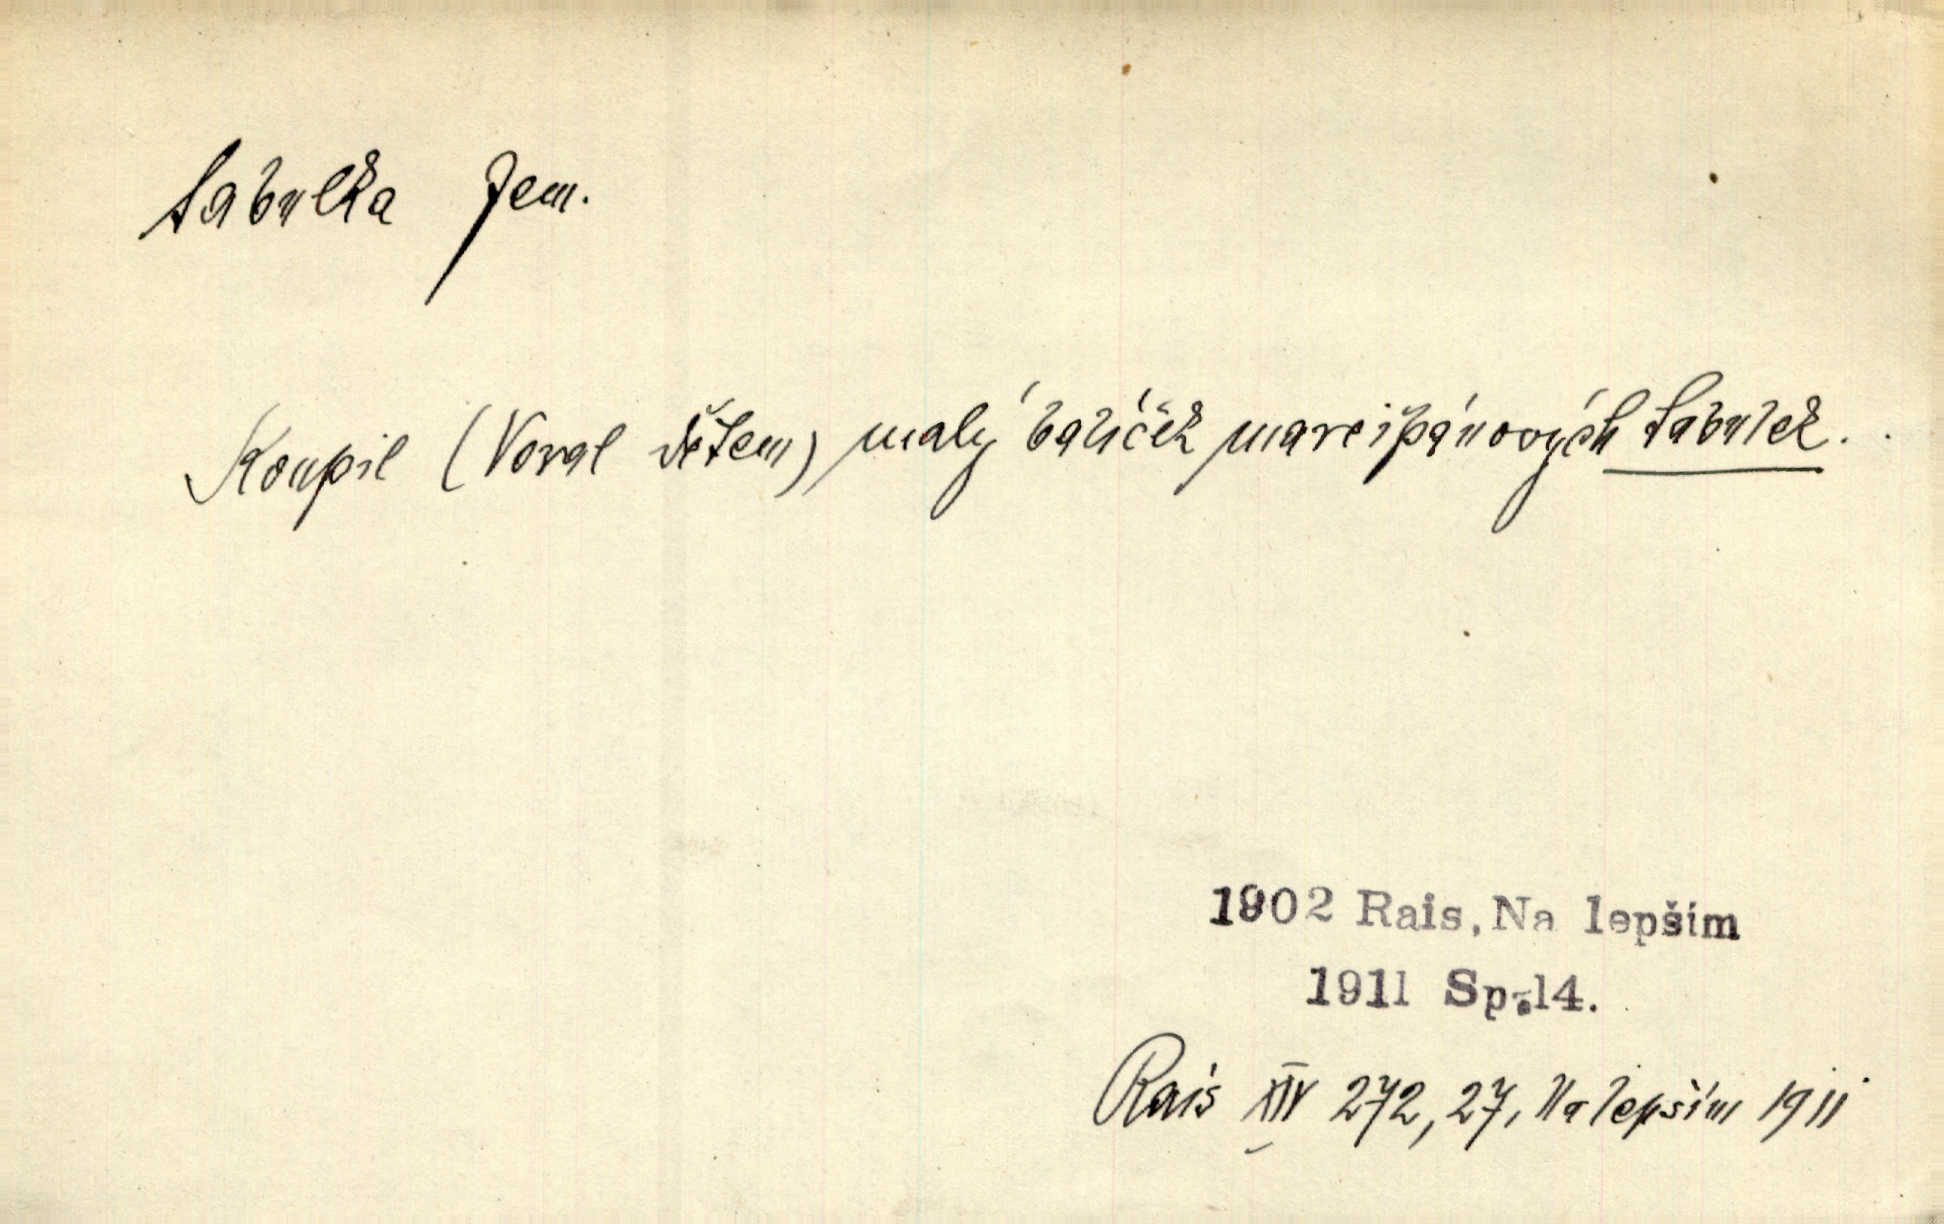 tabulka fem.
Koupil (Voral dětem) malý balíček marcipánových tabulek.
1902 Rais, Na lepším
1911 Sp.14.
Rais XIV 272, 27, Na lepším 1911